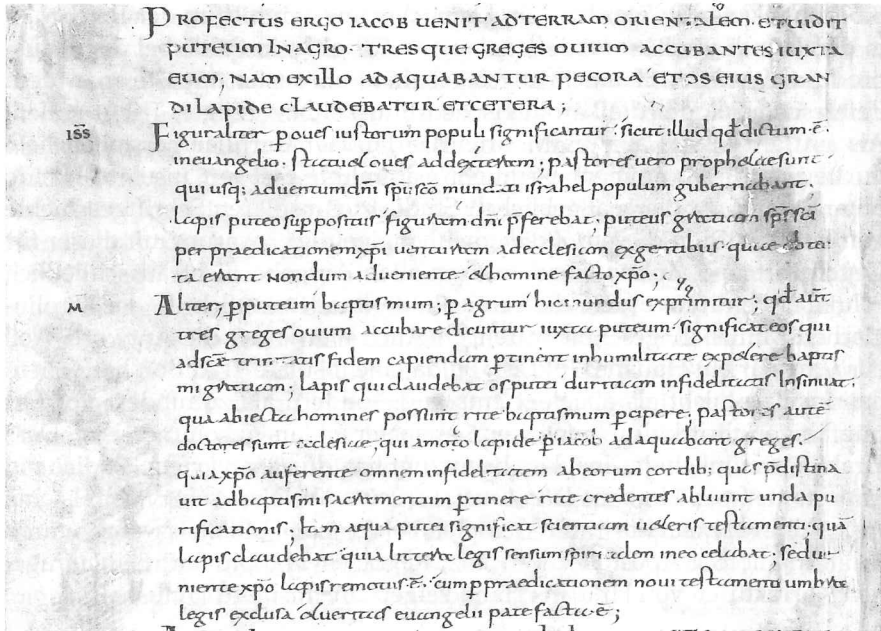 PROFECTUS ERGO IACOB UENIT AD TERRAM ORIENTALEM. ET UIDIT
PUTEUM IN AGRO. TRESQUE GREGES OUIUM ACCUBANTES IUXTA
EUM; NAM EX ILLO ADAQUABANTUR PECORA ET OS EIUS GRAN
DI LAPIDE CLAUDEBATUR ET CETERA;
ISS̄ Figuraliter ꝑ oues iustorum populi significantur. sicut illud qd̄ dictum. ē.
in euangelio. statuet oues ad dexteram; pastores uero prophetae sunt
qui usq; aduentum dn̄i sp̄u sc̄o mundati israhel populum gubernabant.
lapis puteo suꝑpositus figuram dn̄i p̄ferebat; puteus gratiam sp̄s sc̄i
per praedicationem xp̄i uenturam ad ecclesiam ex gentibus. quae
ta erant nondum adueniente & homine facto xp̄o;
M Aliter, ꝑ puteum baptismum; ꝑ agrum hic mundus exprimitur; qd̄ aut̄
tres greges ouium accubare dicuntur iuxta puteum. significat eos qui
ad sc̄ae trinitatis fidem capiendam ꝑtinent in humilitate expetere baptis
mi gratiam; lapis qui claudebat os putei duritiam infidelitatis insinuat;
qua abiecta homines possunt rite baptismum ꝑcipere; pastores autē
doctores sunt ecclesiae; qui amoto lapide ꝑ iacob adaquabant greges.
quia xp̄o auferente omnem infidelitatem ab eorum cordib; quos p̄distina
uit ad baptismi sacramentum ꝑtinere rite credentes abluunt unda pu
rificationis; Item aqua putei significat scientiam ueteris testamenti. quā
lapis claudebat quia littera legis sensum spiritalem in eo celabat. sed ue
niente xp̄o lapis remotus. ē. cum ꝑ praedicationem noui testamenti umbra
legis exclusa & ueritas euangelii patefacta. ē;